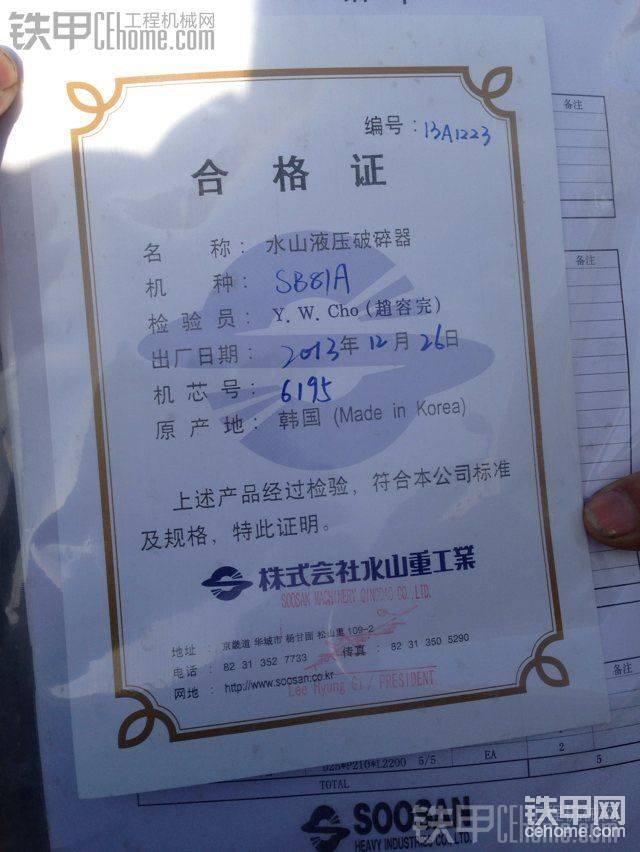 铁甲 工程机械网
CEhome.com
备注
编号：13A1223
合格证
名称：水山液压破碎器
机种：SB81A
检验员：Y. W. Cho (趙容完)
出厂日期：2013年12月26日
机芯号：6195
原产地：韩国 (Made in Korea)
上述产品经过检验，符合本公司标准
及规格，特此证明。
株式会社水山重工業
SOOSAN MACHINERY QINGDAO CO.,LTD.
地址：京畿道 华城市 杨甘面 松山里 109-2
电话：82 31 352 7733 传真：82 31 350 5290
网地：http://www.soosan.co.kr
Lee Hyung Gi / PRESIDENT
备注
备注
*P210*L2200 5/5 EA 2
TOTAL 5
SOOSAN
HEAVY INDUSTRIES CO.,LTD.
铁甲网
cehome.com